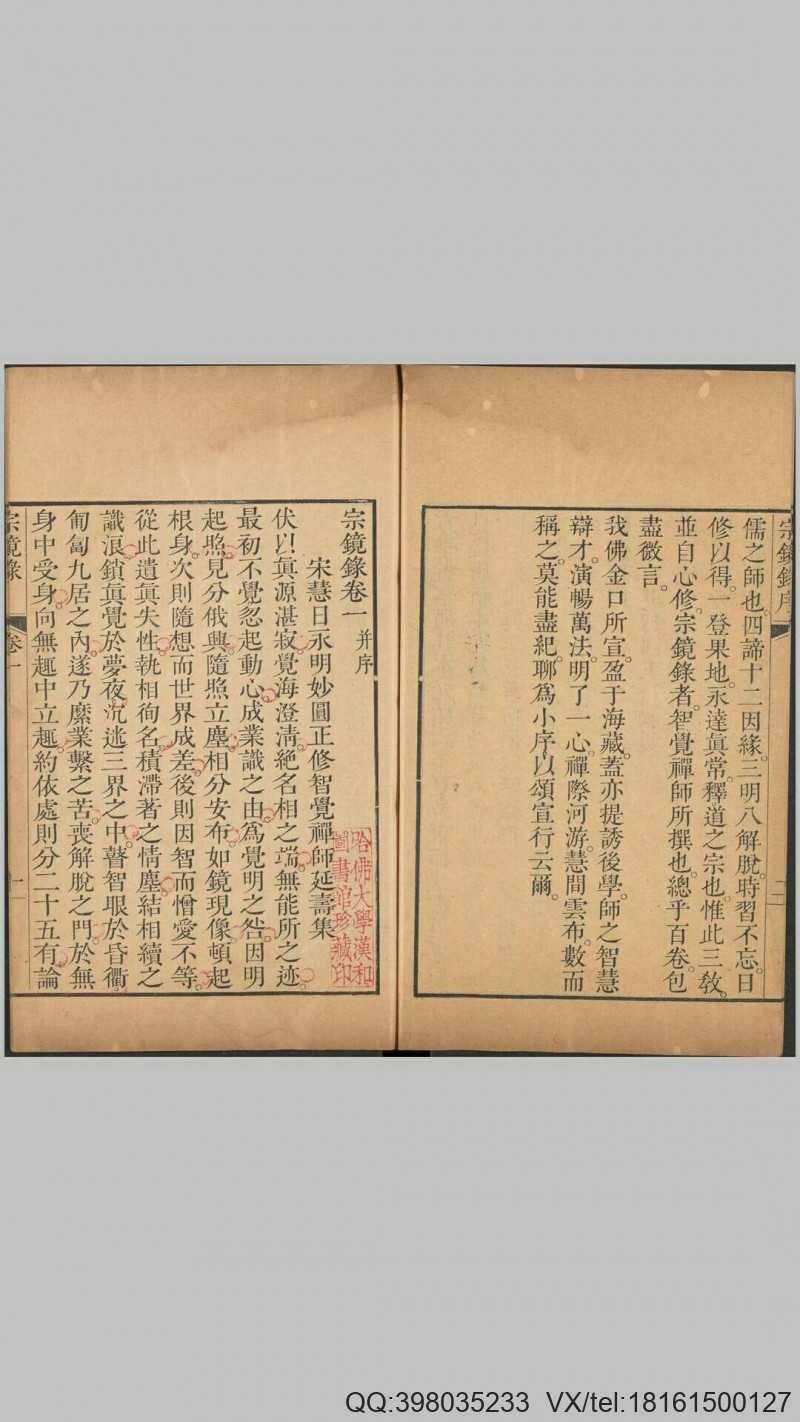 宗鏡錄序
二
儒之師也。四諦十二因緣。三明八解脫。時習不忘。日
修以得。一登果地。永達眞常。釋道之宗也。惟此三敎。
並自心修。宗鏡錄者。智覺禪師所撰也。總乎百卷。包
盡微言。
我佛金口所宣。盈于海藏。蓋亦提誘後學。師之智慧
辯才。演暢萬法。明了一心。禪際河游。慧間雲布。數而
稱之。莫能盡紀。聊爲小序。以頌宣行云爾。
宗鏡錄卷一 并序
宋慧日永明妙圓正修智覺禪師延壽集
伏以眞源湛寂。覺海澄淸。絕名相之端。無能所之迹。
最初不覺。忽起動心。成業識之由。爲覺明之咎。因明
起照。見分俄興。隨照立塵。相分安布。如鏡現像。頓起
根身。次則隨想而世界成差。後則因智而憎愛不等。
從此遺眞失性。執相徇名。積滯著之情塵。結相續之
識浪。鎖眞覺於夢夜。沉迷三界之中。瞽智眼於昏衢。
匍匐九居之內。遂乃縻業繫之苦。喪解脫之門。於無
身中受身。向無趣中立趣。約依處則分二十五有。論
宗鏡錄
卷一
一
哈佛大學漢和
圖書館珍藏印
QQ:398035233 VX/tel:18161500127